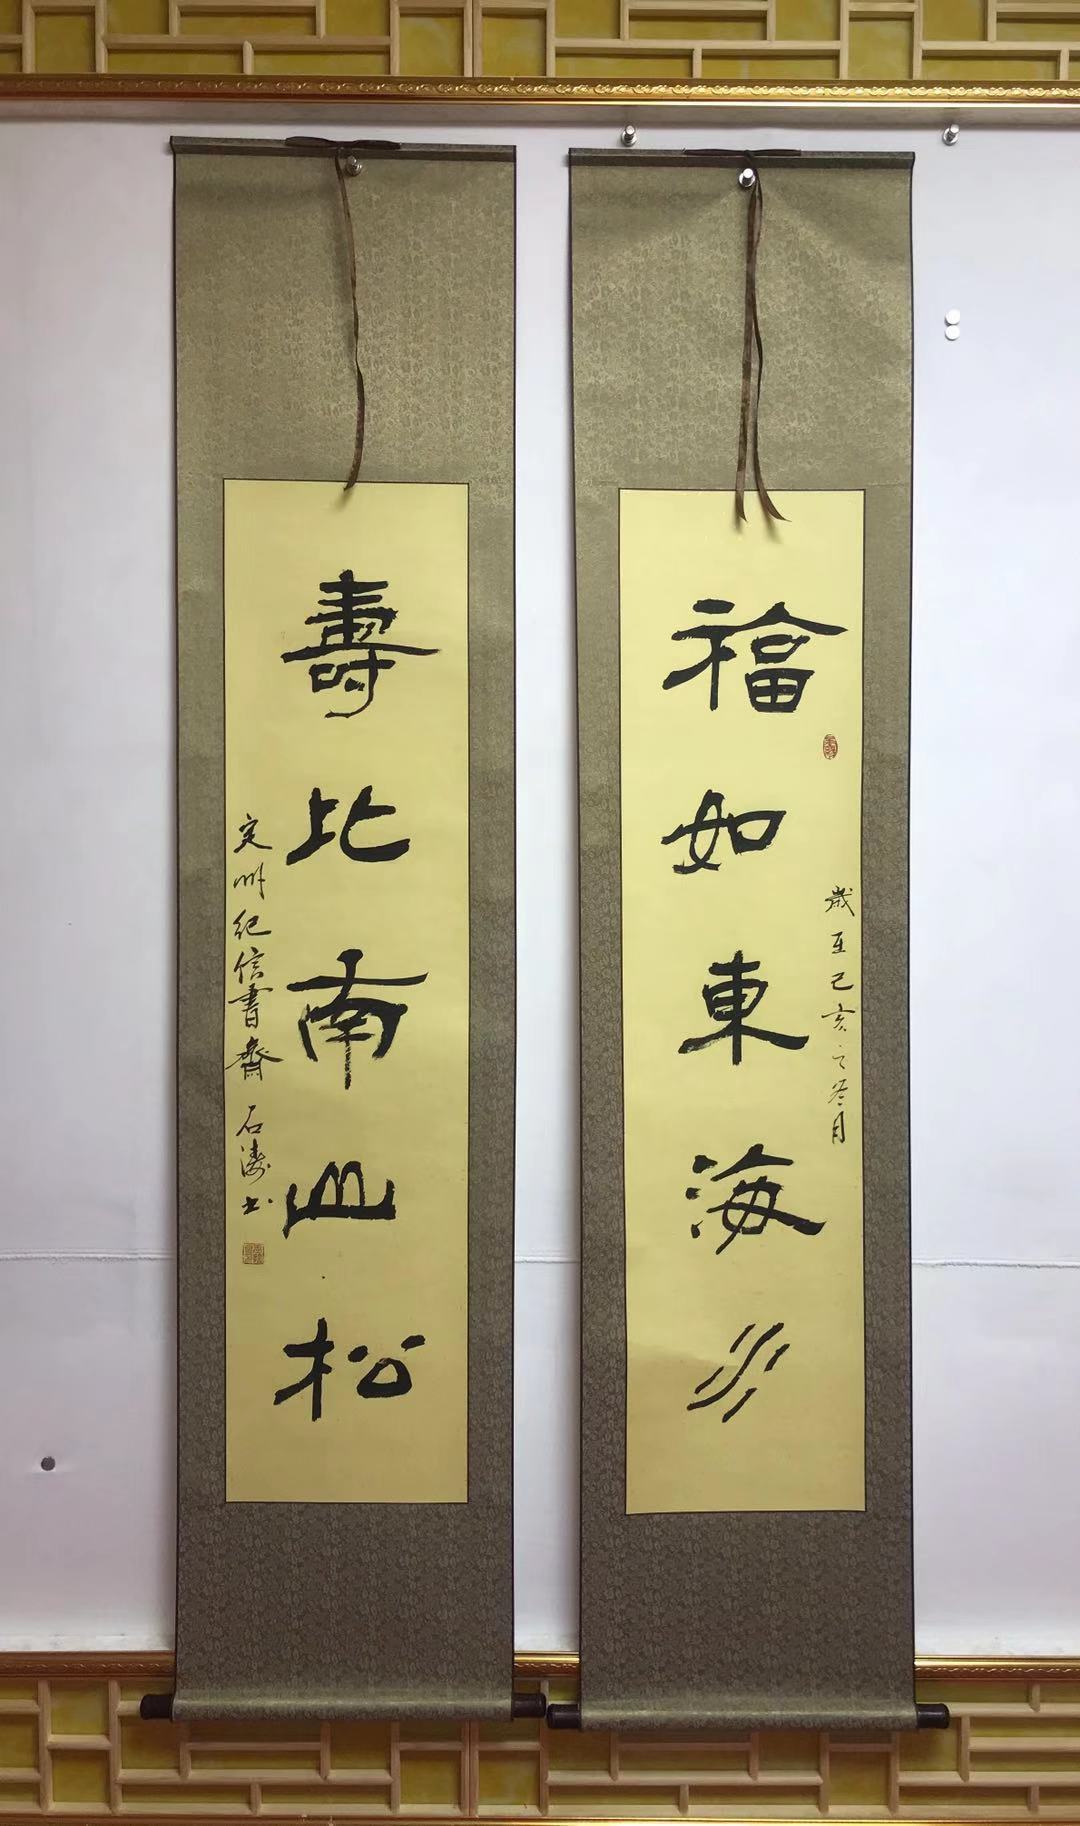 福如東海水
歲至己亥之冬月
壽比南山松
定州紀信書齋 石濤书